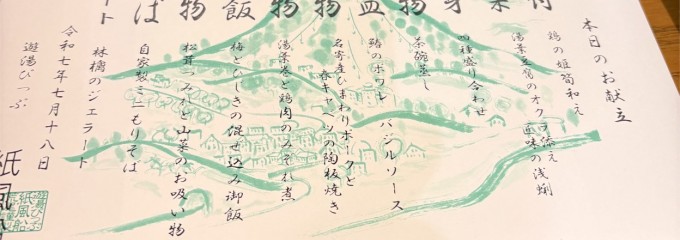 本日のお献立
鶏の姫筒和え
湯葉豆腐のオクラ添え
五味の浅蜊
四種盛り合わせ
茶碗蒸し
鮭のポワレ バジルソース
名寄産ひまわりポークと
春キャベツの陶板焼き
湯葉巻と鶏肉のみぞれ煮
梅とひじきの混ぜ込み御飯
松茸つみれと山菜のお吸い物
自家製ミニもりそば
林檎のジェラート
令和七年七月十八日
遊湯ぴっぷ
紙風
ート
ば
物
飯
物
物
皿